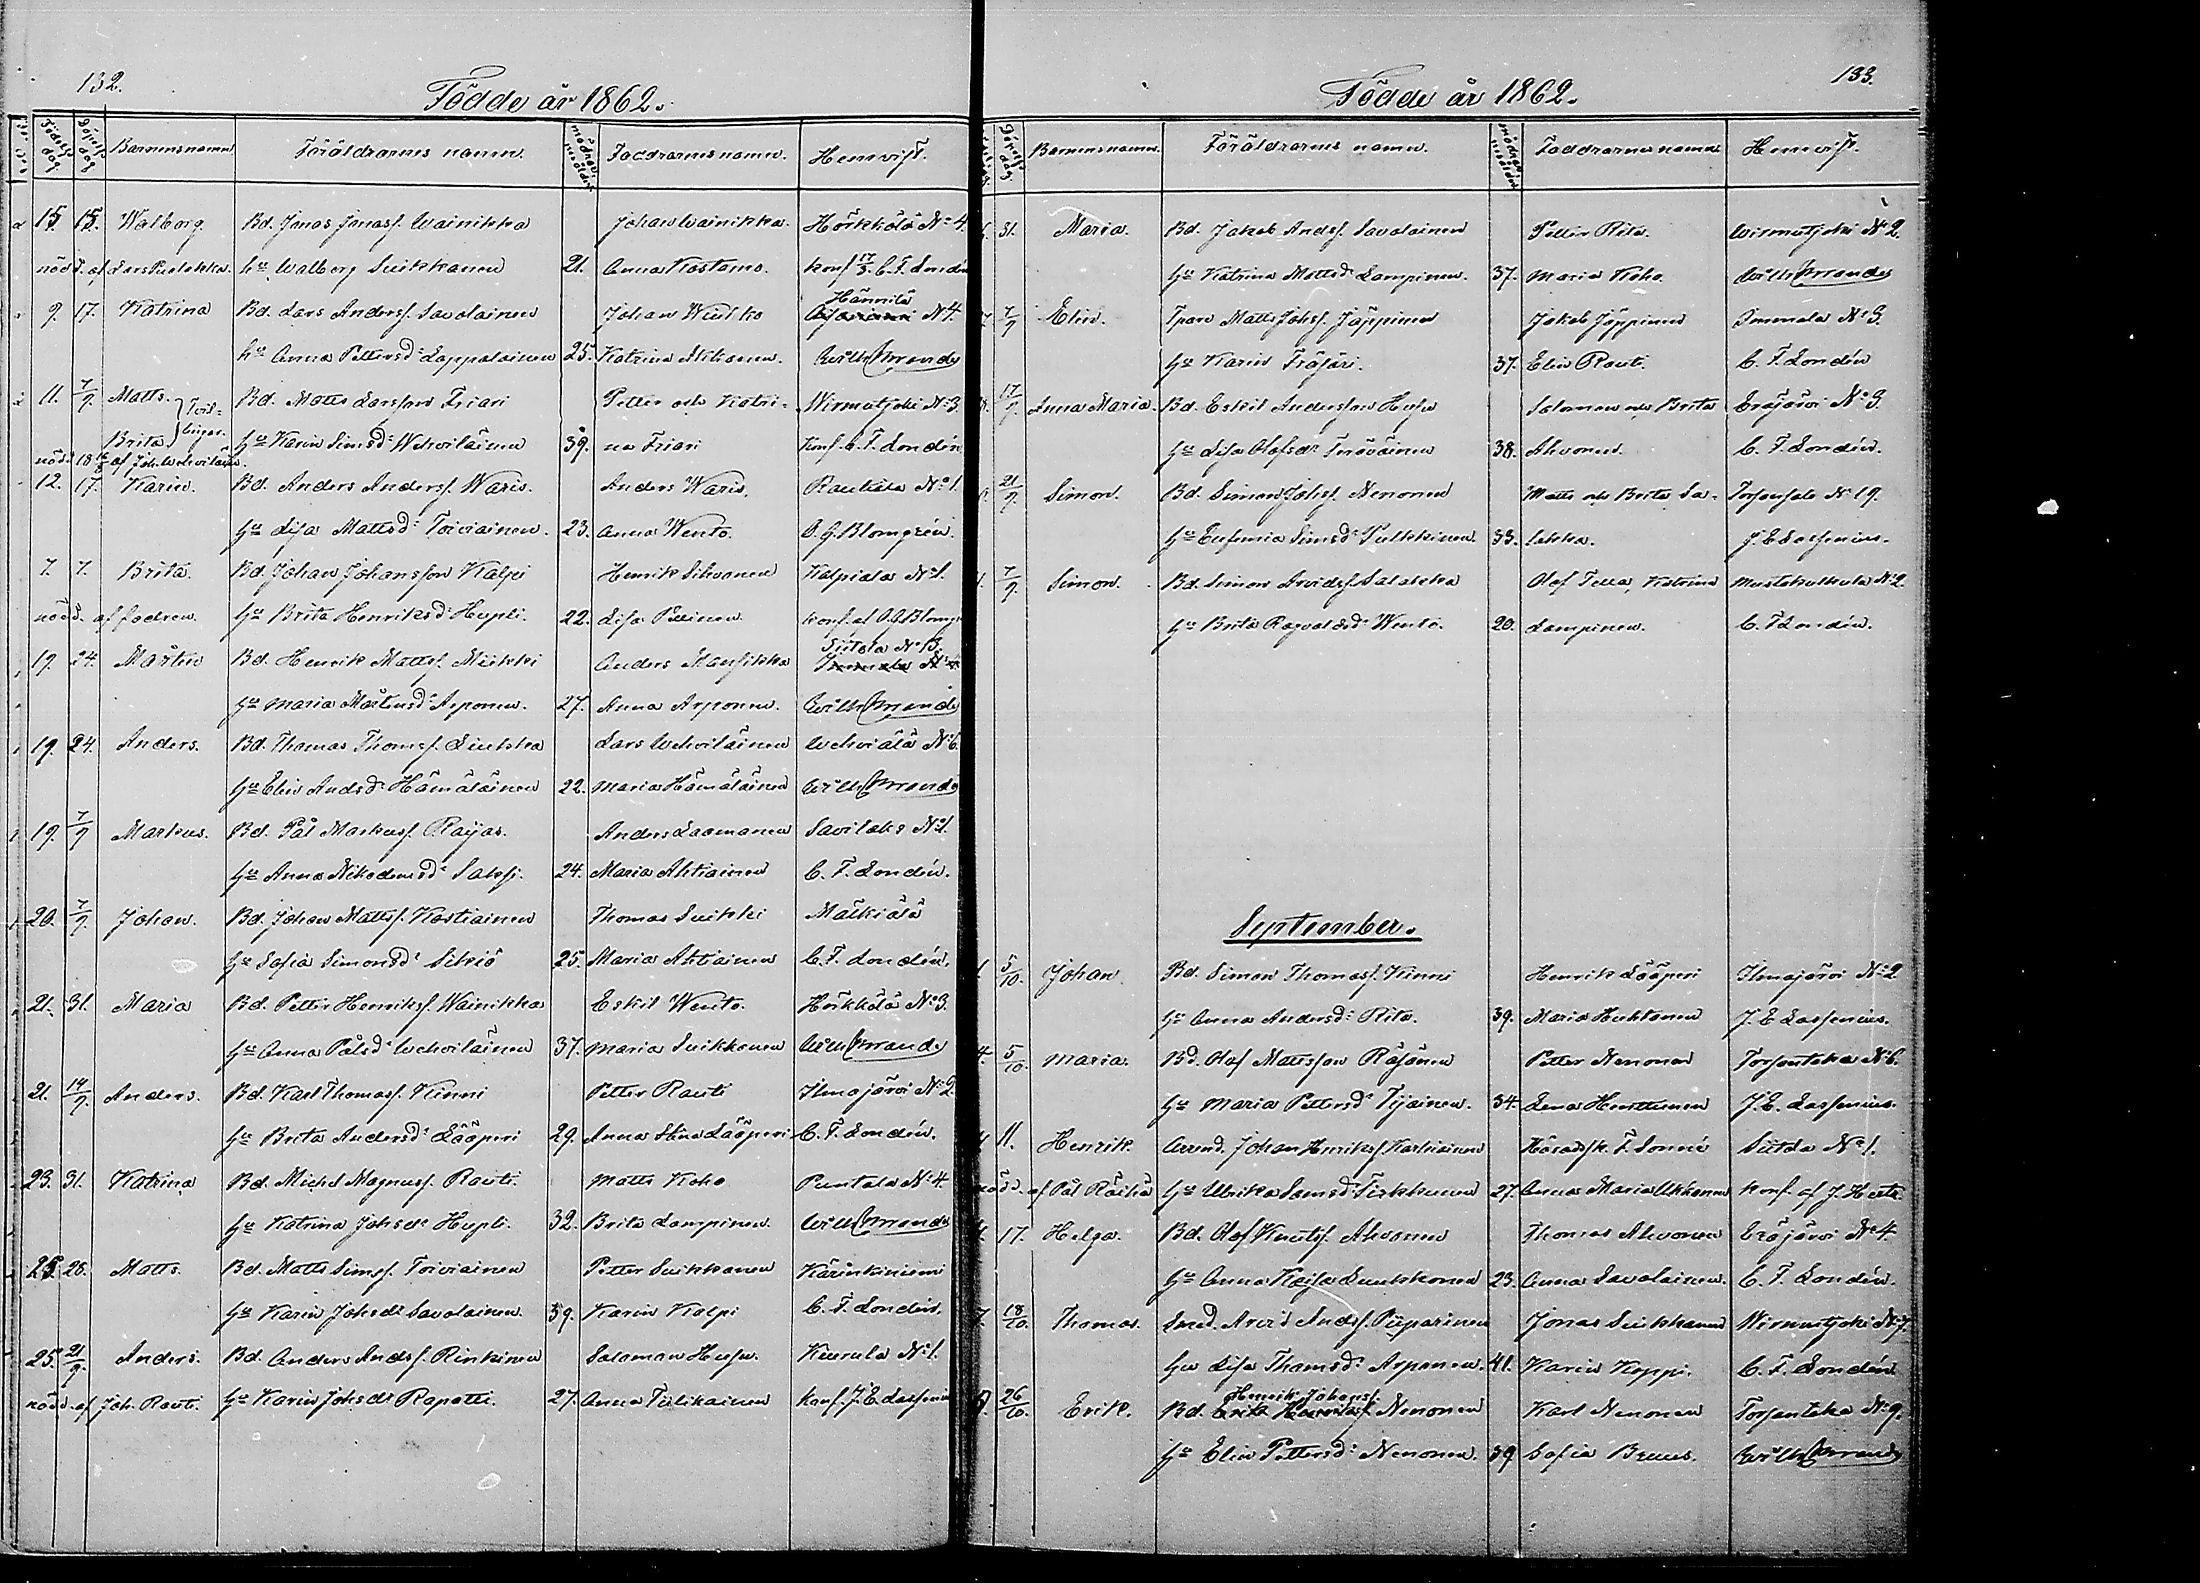 132.
Födde år 1862.
Födelse dag Döpelse dag Barnens namn Föräldrarnes namn. mödrarnes ålder Faddrarnes namn. Hemvist.
15 15. Walborg Bd. Jonas Jonass. Wainikka Johan Wainikka. Hörkkölä No 4.
nödd. af Lars Puolakka. hu Walborg Suikkanen 21. Anna Kostamo. Konf 17/8. C. F. Londén
Hännilä
9. 17. Katrina Bd. Lars Anderss. Savolainen Johan No 4.
hu Anna Pettersdr Lappalainen 25. Katrina
11. 7/9. Matts. Bd. Matts Larsson Friari Petter och Katri- Wirmutjoki No 3.
Brita hu Karin Simsdr Wehviläinen 39. na Friari Konf. C. F. Londén
nödd 18 16/8 af Joh. Wehviläinen.
12. 17. Karin. Bd. Anders Anderss. Waris. Anders Waris. Rautiala No 1.
hu Lisa Mattsdr Toiviainen. 23. Anna Wento. O. G. Blomgrén.
7. 7. Brita. Bd. Johan Johansson Kalpi Henrik Sihvonen Kalpiala No 1.
nödd. af fadren. hu Brita Henriksdr Hupli. 22. Lisa Pellinen konf. af O. G. Blomgr
Siitola No 13.
19. 24. Mårten Bd. Henrik Matts. Miikki Anders Kansikka
hu Maria Mårtensdr Arponen. 27. Anna Arponen.
19. 24. Anders. Bd. Thomas Thomss. Liukka Lars Wehviläinen Wehviälä No 6.
hu Elin Andsdr Hämäläinen 22. Maria Hämäläinen
19. 7/9 Markus. Bd. Pål Markuss. Rajas. Anders Laamanen Savilaks No 1.
hu Anna Nikodemsdr Saksi. 24. Maria Ahtiainen C. F. Londén.
20. 7/9. Johan. Bd. Johan Mattss. Kostiainen Thomas Suikki Mälkiälä
hu Sofia Simonsdr Silviö 25. Maria Ahtiainen C. F. Londén.
21. 31. Maria Bd. Petter Henrikss. Wainikka Eskil Wento. Hörkkölä No 3.
hu Anna Pålsdr Wehviläinen 37. Maria Suikkanen
21. 14/9. Anders. Bd. Karl Thomass. Kinni Petter Rauti Ilmajärvi No 2.
hu Brita Andersdr Lääperi 29. Anna Stina Lääperi C. F. Londén.
23. 31. Katrina Bd. Michel Magnuss. Rauti. Matts Koho Puntala No 4
hu Katrina Johsdr Hupli. 32. Brita Lampinen.
25. 28. Matts. Bd. Matts Simss. Toiviainen Petter Suikkanen Kärinkiniemi
hu Karin Johsdr Savolainen. 39. Karin Kalpi C. F. Londén.
25. 21/9. Anders. Bd. Anders Andss. Rinkinen Salomon Husu. Kurula No 1.
nödd. af Joh. Rauti. hu Karin Johsdr Rapatti. 27. Anna Tiilikainen konf. J. E. Lassenius
133.
Födde år 1862.
Döpelse dag. Barnens namn. Föräldrarnes namn. mödrarnes ålder Faddrarnes namn. Hemvist.
31. Maria. Bd. Jakob Andss. Savolainen Petter Rita. Wirmutjoki No 2.
hu Katrina Mattsdr Lampinen. 37. Maria Koho.
7/9 Elin. Tpare Matts Johss. Jäppinen Jakob Jäppinen Immala No 3.
hu Karin Träjäri. 37. Elin Rauti. C. F. Londén
17/9. Anna Maria. Bd. Eskil Andersson Husu Salomon och Brita Eräjärvi No 3.
hu Lisa Olofsdr Terväinen 38. Ahvonen. C. F. Londén.
21/9. Simon. Bd. Simon Johss. Nenonen Matts och Brita Sa- Torsansalo No 19.
hu Eufemia Simsdr Pulkkinen. 33. lakka. J. E. Lassenius.
7/9. Simon. Bd. Simon Arvidss. Salakka Olof Tella, Katrina Mustakulkula No 2
hu Brita Ragvaldsdr Wento. 20. Lampinen. C. F. Londén.
September.
1. 5/10. Johan. Bd. Simon Thomass. Kinni Henrik Lääperi Ilmajärvi No 2
hu Anna Andersdr Rita. 39. Maria Huhtanen J. E. Lassenius.
4. 5/10. Maria. Bd. Olof Mattsson Räsänen Petter Nenonen Torsantaka No 6.
hu Maria Pettersdr Tijainen. 34. Lena Hurttunen J. E. Lassenius.
11. Henrik. Arend. Johan Henrikss. Karhiainen Häradssk. F. Siitola No 1.
nödd. af Pål Räihä hu Ulrika Samsdr Tirkkunen 27. Anna Maria Ukkonen Konf. af J.
17. Helga. Bd. Olof Knutss. Ahvonen Thomas Ahvonen Eräjärvi No 4
hu Anna Kaisa Luukkonen 23. Anna Savolainen. C. F. Londén.
7. 18/10. Thomas. Smed. Arvid Andss. Piiparinen Jonas Suikkanen Wirmutjoki No 7.
hu Lisa Thomsdr Arponen. 41. Karin Koppi. C. F. Londén
Henrik Johanss.
26/10. Erik. Bd. Nenonen Karl Nenonen Torsantaka No 9.
hu Elin Pettersdr Nenonen. 39 Sofia Bruus.